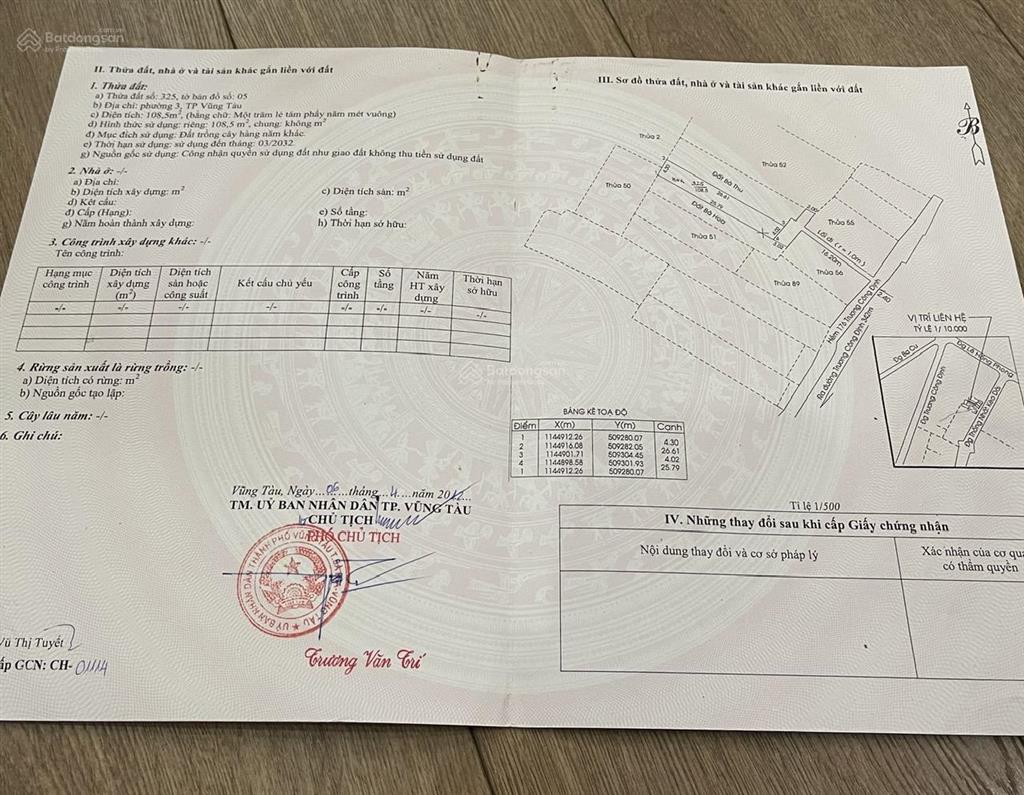 Batdongsan
by PropertyGuru
II. Thửa đất, nhà ở và tài sản khác gắn liền với đất
1. Thửa đất:
a) Thửa đất số: 325, tờ bản đồ số: 05
b) Địa chỉ: phường 3, TP Vũng Tàu
c) Diện tích: 108,5m², (bằng chữ: Một trăm lẻ tám phẩy năm mét vuông)
d) Hình thức sử dụng: riêng: 108,5 m², chung: không m²
đ) Mục đích sử dụng: Đất trồng cây hàng năm khác.
e) Thời hạn sử dụng: sử dụng đến tháng: 03/2032.
g) Nguồn gốc sử dụng: Công nhận quyền sử dụng đất như giao đất không thu tiền sử dụng đất
2. Nhà ở: -/-
a) Địa chỉ:
b) Diện tích xây dựng: m²
c) Diện tích sàn: m²
d) Kết cấu:
đ) Cấp (Hạng):
e) Số tầng:
g) Năm hoàn thành xây dựng:
h) Thời hạn sở hữu:
3. Công trình xây dựng khác: -/-
Tên công trình:
Hạng mục công trình
Diện tích xây dựng (m²)
Diện tích sàn hoặc công suất
Kết cấu chủ yếu
Cấp công trình
Số tầng
Năm HT xây dựng
Thời hạn sở hữu
-/- -/- -/- -/- -/- -/- -/- -/-
4. Rừng sản xuất là rừng trồng: -/-
a) Diện tích có rừng: m²
b) Nguồn gốc tạo lập:
5. Cây lâu năm: -/-
6. Ghi chú:
Vũng Tàu, Ngày...06...tháng...4...năm 2012...
TM. UỶ BAN NHÂN DÂN TP. VŨNG TÀU
CHỦ TỊCH
PHÓ CHỦ TỊCH
Trương Văn Trí
Vũ Thị Tuyết
ấp GCN: CH-01114
III. Sơ đồ thửa đất, nhà ở và tài sản khác gắn liền với đất
B
Thửa 2
Thửa 52
Thửa 50
Đất Bà Thu
26.61
325
108.5
25.79
Đất Bà Hoa
Thửa 51
Thửa 55
Lối đi ( r = 1.0m )
16.20m
Thửa 56
Thửa 89
2.40
Hẻm 176 Trương Công Định
Ra đường Trương Công Định 342m
VỊ TRÍ LIÊN HỆ
TỶ LỆ 1/ 10.000
Dg Ba Cu
Dg Lê Hồng Phong
Dg Trương Công Định
BẢNG KÊ TOẠ ĐỘ
Điểm X(m) Y(m) Cạnh
1 1144912.26 509280.07
4.30
2 1144916.08 509282.05
26.61
3 1144901.71 509304.45
4.02
4 1144898.58 509301.93
25.79
1 1144912.26 509280.07
Tỉ lệ 1/500
IV. Những thay đổi sau khi cấp Giấy chứng nhận
Nội dung thay đổi và cơ sở pháp lý
Xác nhận của cơ qua
có thẩm quyền
Batdongsan